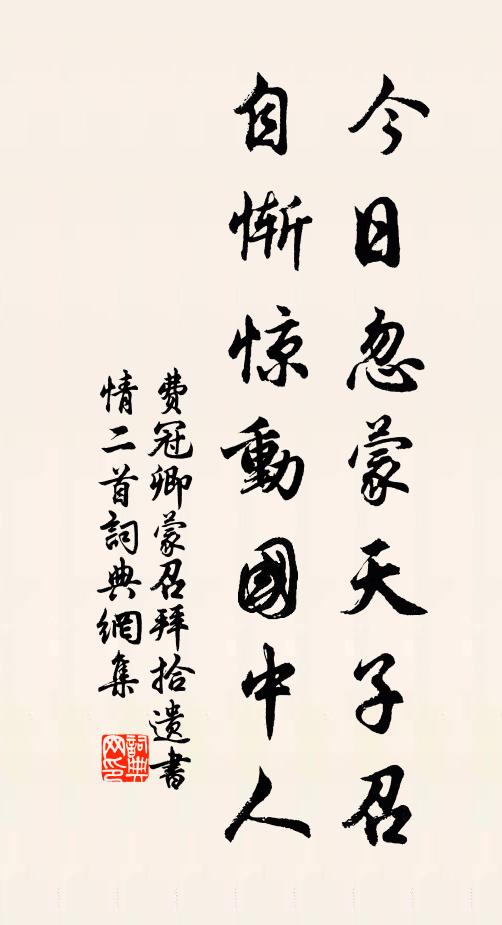 今日忽蒙天子召
自惭惊動國中人
费冠卿蒙召拜拾遗書
情二首詞典網集
詞典
网印